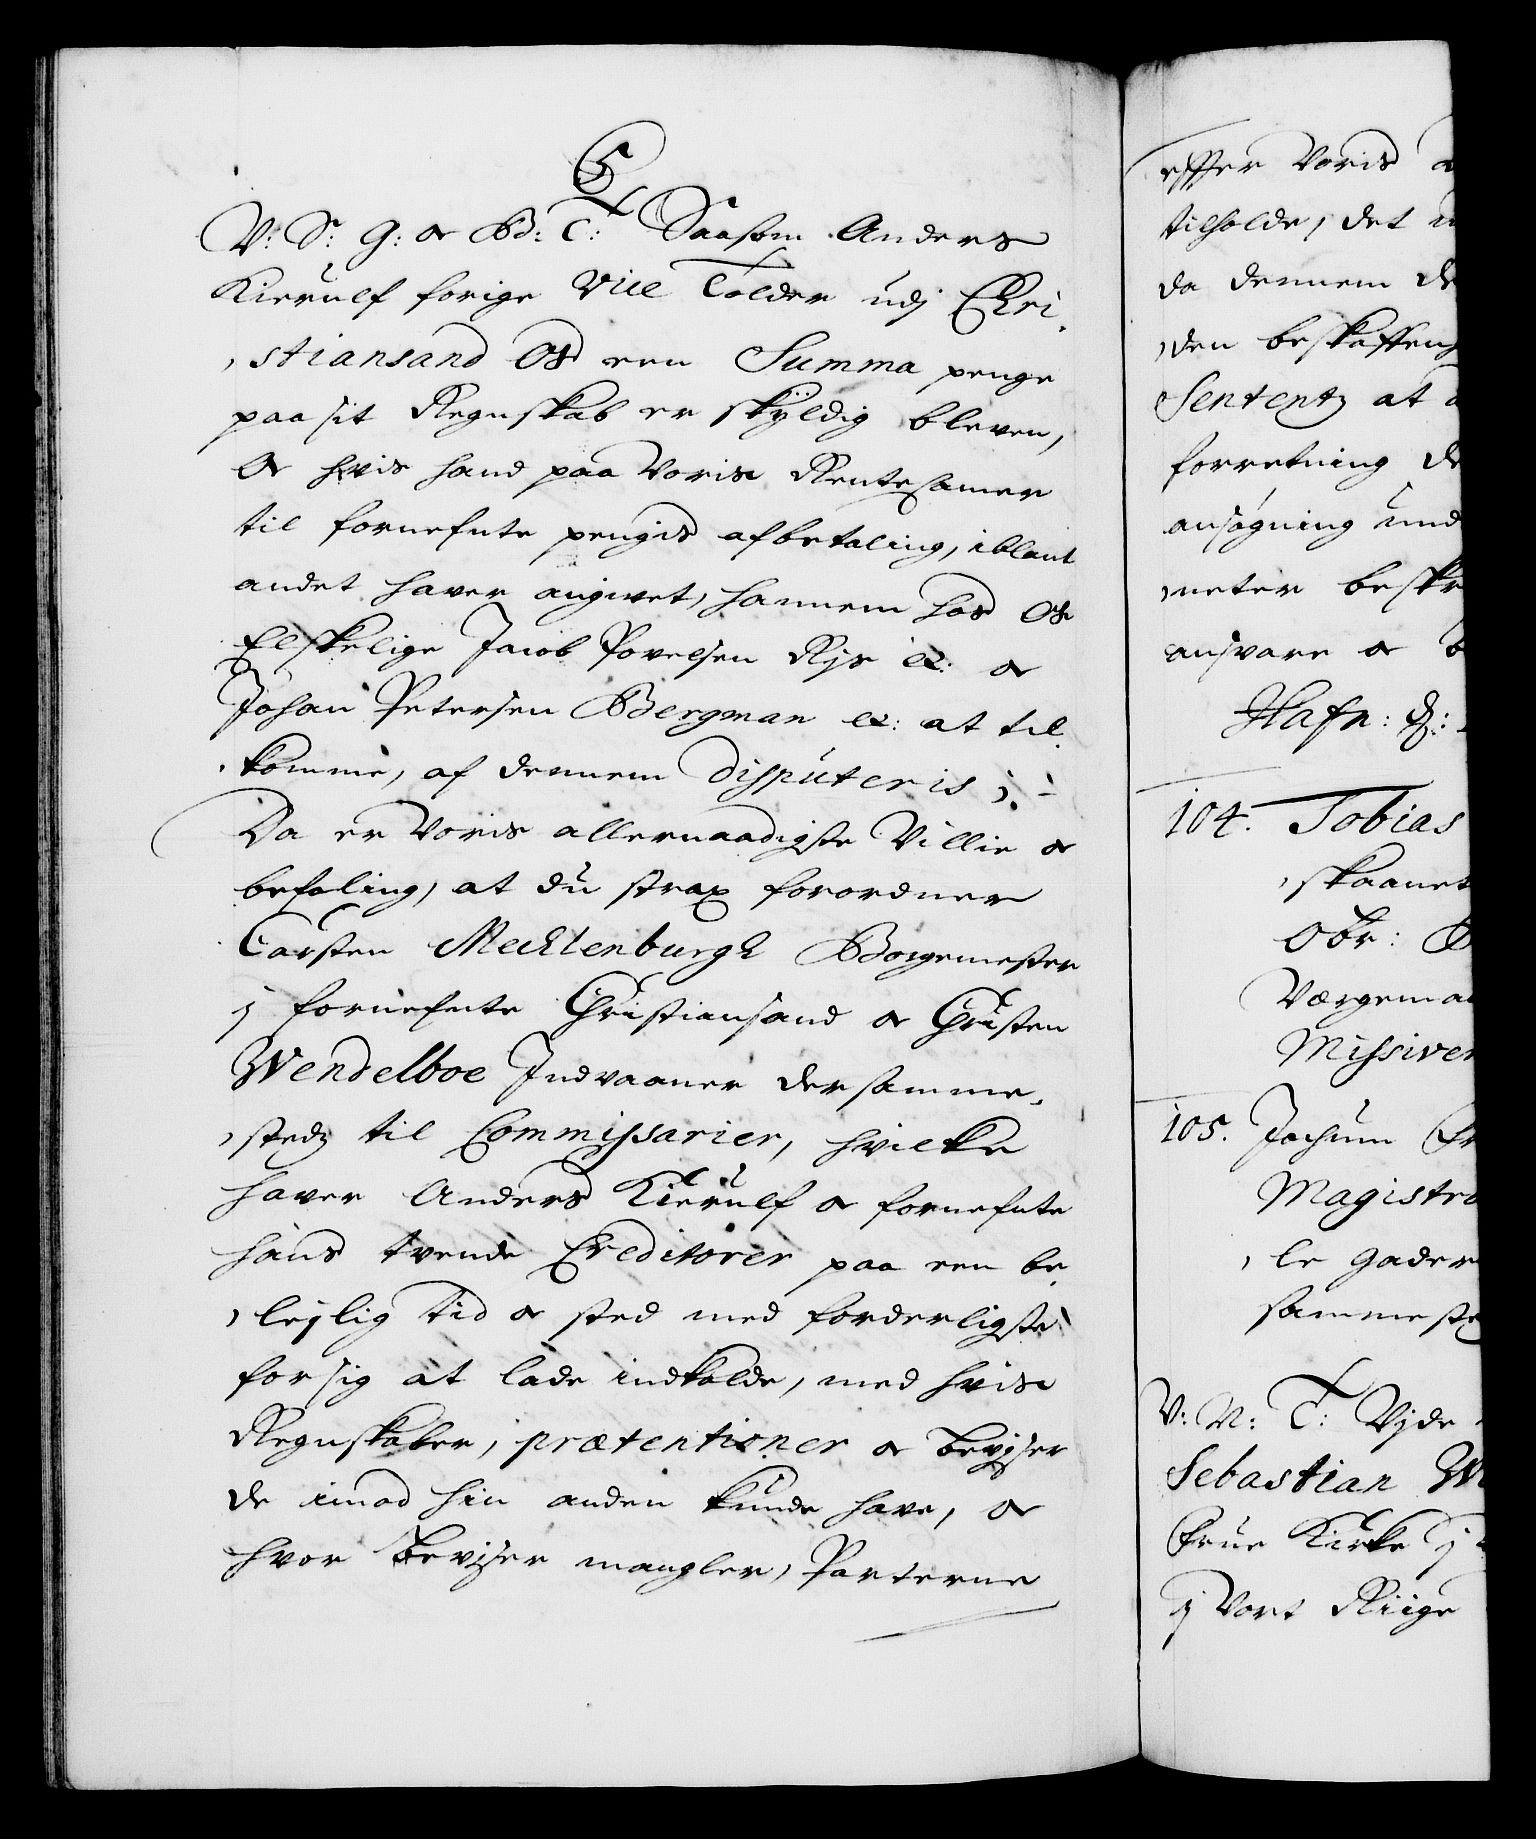 V: S: G: oc Bd: C: Saasom Anders
Kierulf forige Vice Tolder udj Chri,
,stiansand Os een Summa penge
paa sit Regnskab er skÿldig bleven,
Oc hvis hand paa Voris RenteCamer
til fornefnte pengis afbetaling, iblant
andet haver angivet, hannem hos Os
Elskelige Jacob Povelsen Rys ec: oc
Johan Petersen Bergman ec: at til,
,komme, af dennem disputeris;
Da er Voris allernaadigste Villie oc
befaling, at du strax forordner
Carsten Mecklenburgh Borgemester
j fornefnte Christiansand oc Christen
Wendelboe Indvaaner dersamme,
,stedz til Commissarier, hvilke
haver Anders Kierulf oc fornefnte
hans tvende Creditorer paa een be,
,lejlig tid oc sted med forderligste
for sig at lade indkalde, med hvis
Regnskaber, prætentioner oc bevjser
de imod hin anden kunde have, oc
hvor bevjser mangler, Parterne
effter Voris
tilholde, det
da dennem
,den beskaffen
Sententz at
forretning
ansøgning und
,neter beskr
ansvare oc
Hafn: d:
104. Tobias
,skaanet
Obr:
Værgema
Missiven
105. Jochum
Magistra
,le gader
sammeste
V: N: C: Vjde
Sebastian
Frue Kirke j
j Vort Riige